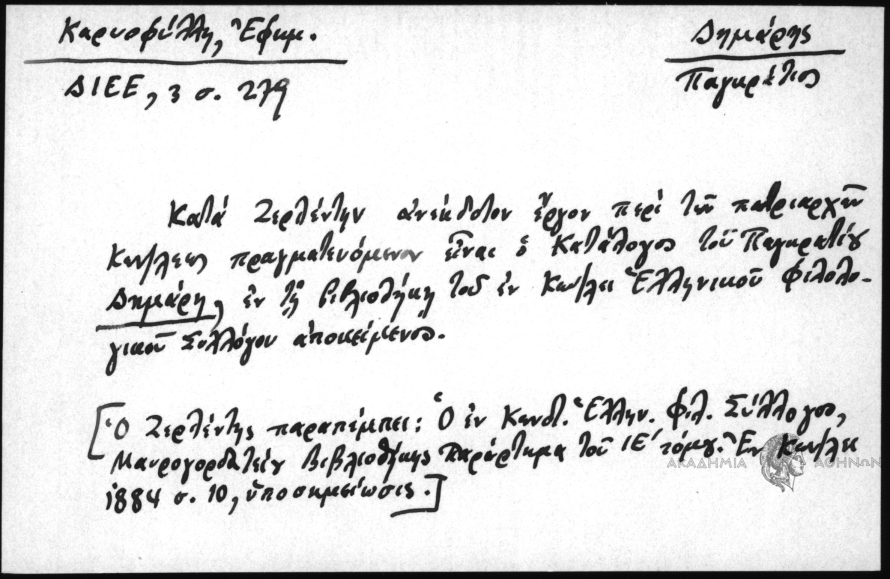 Καρυοφύλλη, Ἐφημ.
Δημάρης
ΔΙΕΕ, 3 σ. 279
Παγκράτιος
Κατά Ζερλέντην ἀνέκδοτον ἔργον περί τῶν πατριαρχῶν
Κων/λεως πραγματευόμενον εἶναι ὁ Κατάλογος τοῦ Παγκρατίου
Δημάρη, ἐν τῇ βιβλιοθήκῃ τοῦ ἐν Κων/λει Ἑλληνικοῦ Φιλολο-
γικοῦ Συλλόγου ἀποκείμενος.
[Ὁ Ζερλέντης παραπέμπει: Ὁ ἐν Κωνστ. Ἑλλην. Φιλ. Σύλλογος,
Μαυρογορδατείου Βιβλιοθήκης Παράρτημα τοῦ ΙΕ' τόμου. Ἐν Κων/λει
1884 σ. 10, ὑποσημείωσις.]
ΑΚΑΔΗΜΙΑ ΑΘΗΝΩΝ